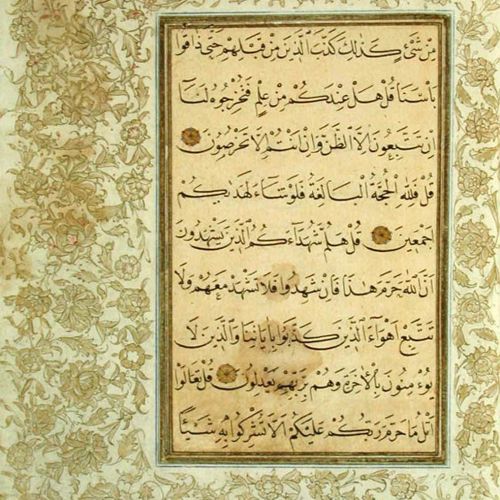 مِنْ شَيْءٍ كَذٰلِكَ كَذَّبَ الَّذِينَ مِنْ قَبْلِهِمْ حَتّٰى ذَاقُوا
بَأْسَنَا قُلْ هَلْ عِنْدَكُمْ مِنْ عِلْمٍ فَتُخْرِجُوهُ لَنَا
اِنْ تَتَّبِعُونَ اِلَّا الظَّنَّ وَاِنْ اَنْتُمْ اِلَّا تَخْرُصُونَ
قُلْ فَلِلّٰهِ الْحُجَّةُ الْبَالِغَةُ فَلَوْ شَاءَ لَهَدٰيكُمْ
اَجْمَعِينَ قُلْ هَلُمَّ شُهَدَاءَكُمُ الَّذِينَ يَشْهَدُونَ
اَنَّ اللّٰهَ حَرَّمَ هٰذَا فَاِنْ شَهِدُوا فَلَا تَشْهَدْ مَعَهُمْ وَلَا
تَتَّبِعْ اَهْوَاءَ الَّذِينَ كَذَّبُوا بِاٰيَاتِنَا وَالَّذِينَ لَا
يُؤْمِنُونَ بِالْاٰخِرَةِ وَهُمْ بِرَبِّهِمْ يَعْدِلُونَ قُلْ تَعَالَوْا
اَتْلُ مَا حَرَّمَ رَبُّكُمْ عَلَيْكُمْ اَلَّا تُشْرِكُوا بِهِ شَيْئًا